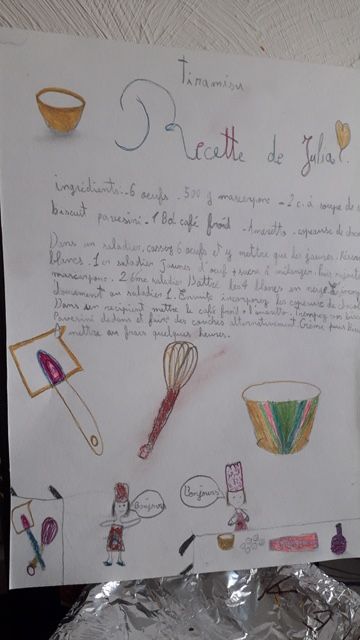 Tiramisu
Recette de Julia
ingrédients: - 6 oeufs - 500 g marscarpone - 2 c. à soupe de
biscuit pavesini - 1 Bol café froid - Amaretto - copeaux de
Dans un saladier, casser 6 oeufs et y mettre que les jaunes.
blancs. 1er saladier Jaunes d'oeuf + sucre à mélanger
marscarpone. 2ème saladier Battre les 4 blancs en neige
doucement au saladier 1. Ensuite incorporez les copeaux de
Dans un recipient mettre le café froid + l'amaretto. Trempez
Pavesini dedans et faire des couches alternativement Crème puis
mettre au frais quelques heures.
Bonjour
Bonjour